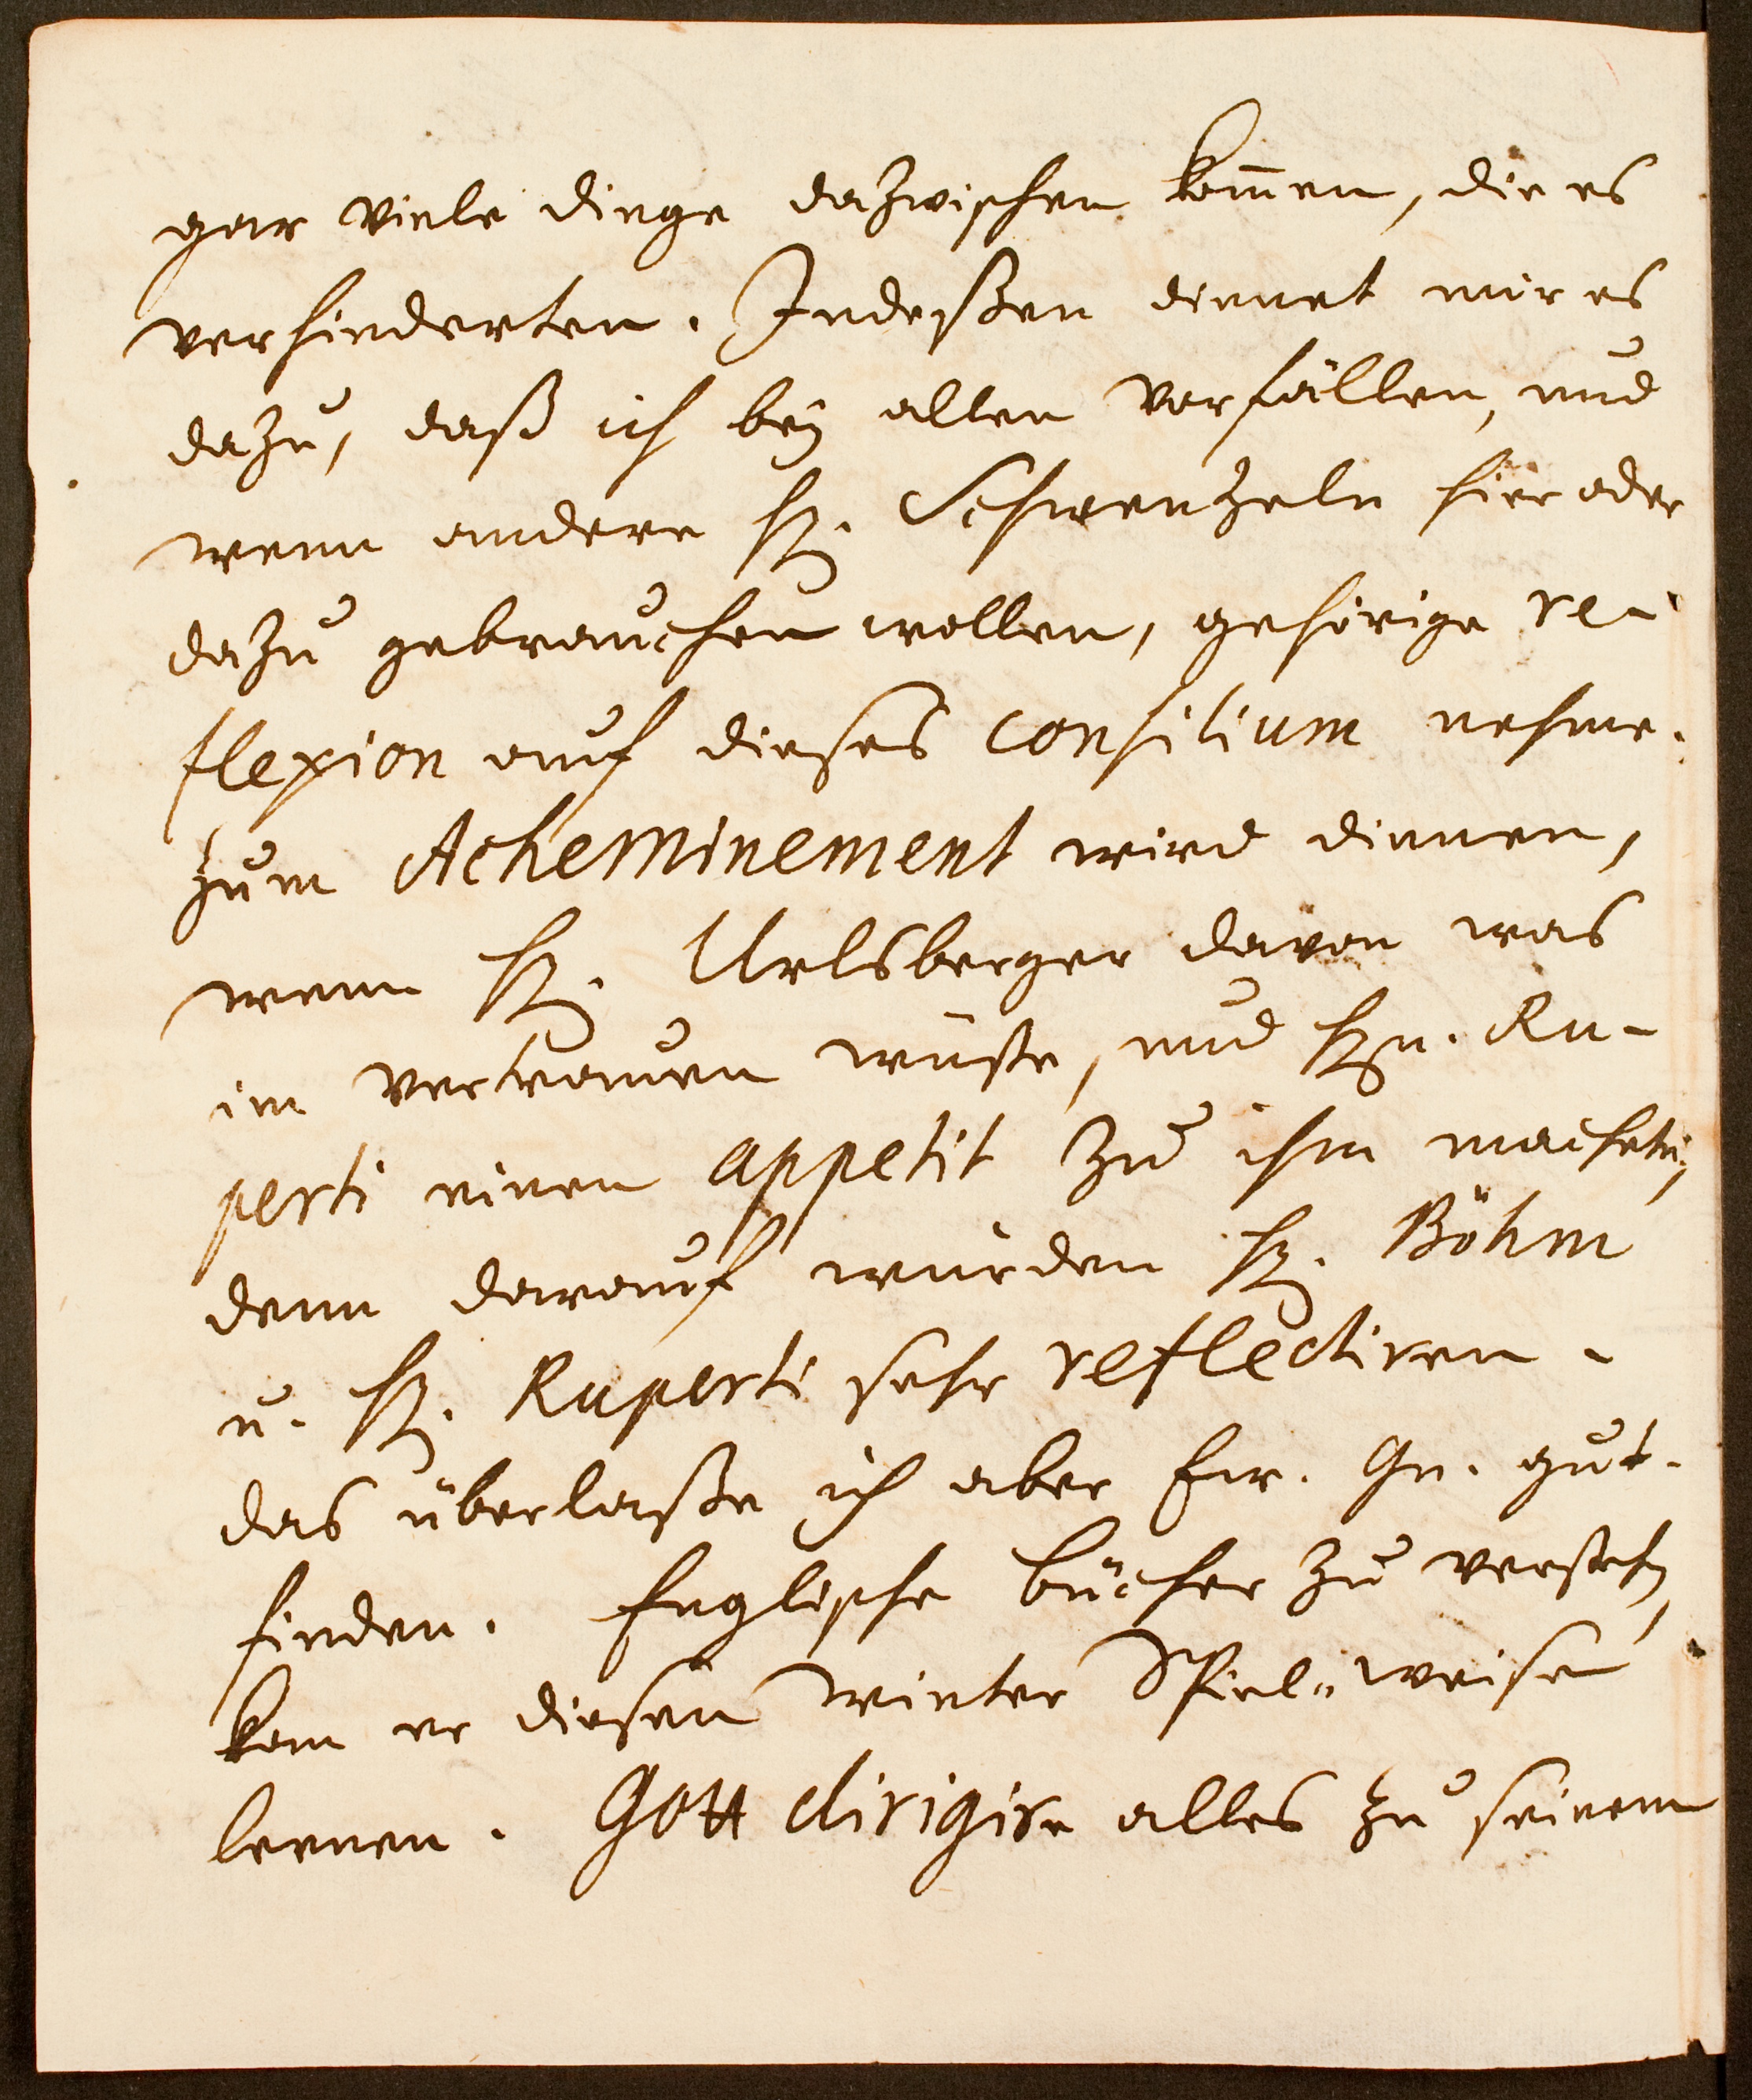 gar viele dinge dazwischen kom̅en, die es
verhinderten. Indeßen dienet mir es
dazu, daß ich beÿ allen Vorfällen, und
wenn andere H. Schwenzeln hier oder
dazu gebrauchen wollen, gehörige re-
flexion auf dieses consilium nehme.
Zum Acheminement wird dienen,
wenn H. Urlsberger davon was
im Vertrauen wüste, und Hn. Ru-
perti einen appetit zu ihm machete,
denn darauf würden H. Böhm
u. H. Ruperti sehr reflectiren.
das überlaße ich aber Ew. Gn. gut-
finden. Englische bücher zu verstehen,
kan er diesen Winter Spiel-weise
lernen. Gott dirigire alles zu seinem